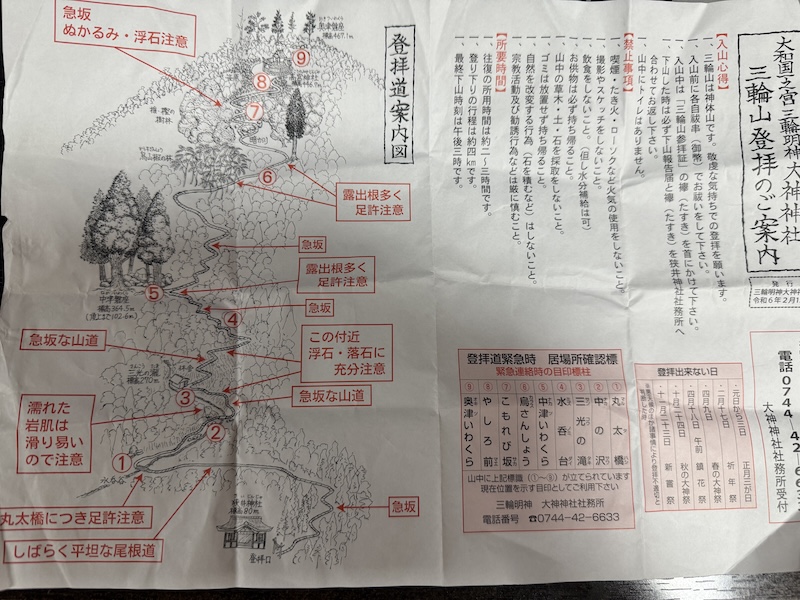 大和国一之宮 三輪明神 大神神社
三輪山登拝のご案内
発行
三輪明神 大神神
令和6年2月1
【入山心得】
一、三輪山は神体山です。敬虔な気持ちでの登拝を願います。
一、入山前に各自祓串（御幣）でお祓いをして下さい。
一、入山中は「三輪山参拝証」の襷（たすき）を首にかけて下さい。
一、下山した時は必ず下山報告届と襷（たすき）を狭井神社社務所へ
合わせてお返し下さい。
一、山中にトイレはありません。
【禁止事項】
一、喫煙・たき火・ローソクなど火気の使用をしないこと。
一、撮影やスケッチをしないこと。
一、飲食をしないこと。（但し水分補給は可）
一、お供物は必ず持ち帰ること。
一、山中の草木・土・石を採取をしないこと。
一、ゴミは放置せず持ち帰ること。
一、自然を改変する行為（石を積むなど）はしないこと。
一、宗教活動及び勧誘行為などは厳に慎むこと。
【所要時間】
一、往復の所用時間は約二〜三時間です。
一、登り下りの行程は約四㎞です。
一、最終下山時刻は午後三時です。
登拝道案内図
急坂
ぬかるみ・浮石注意
奥津磐座
標高467.1m
⑨
⑧
⑦
⑥
烏山椒の林
露出根多く
足許注意
急坂
露出根多く
足許注意
⑤
中津磐座
標高364.5m
急坂
④
急坂な山道
この付近
浮石・落石に
充分注意
三光の滝
標高270m
③
急坂な山道
濡れた
岩肌は
滑り易い
ので注意
②
①
丸太橋につき足許注意
しばらく平坦な尾根道
狭井神社
標高80m
急坂
登拝口
登拝道緊急時 居場所確認標
緊急連絡時の目印標柱
① 丸太橋
② 中の沢
③ 三光の滝
④ 水呑台
⑤ 中津いわくら
⑥ 烏さんしょう
⑦ こもれび坂
⑧ やしろ前
⑨ 奥津いわくら
山中に上記標識（①〜⑨）が立てられています
現在位置を示す目印としてご利用下さい
三輪明神 大神神社社務所
電話番号 ☎0744-42-6633
登拝出来ない日
元日から三日 正月三が日
二月十七日 祈年祭
四月九日 春の大神祭
四月十八日 午前 鎮花祭
十月二十四日 秋の大神祭
十一月二十三日 新嘗祭
大神神社社務所受付
電話0744-42-66